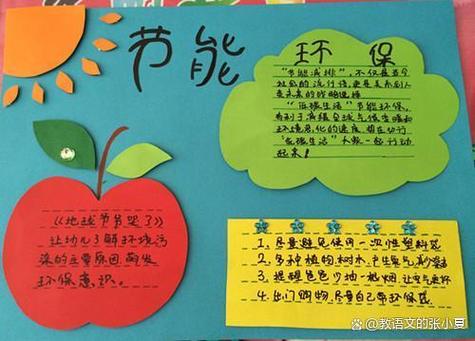 节能
环保
"节能减排",不仅是当今
社会的流行语,更是关系到人
类未来的战略选择
"低碳生活"节能环保,
有利于减缓全球气候变暖和
环境恶化的速度,
"低碳生活"大家一起行动
起来!
《地球爷爷哭了》
让幼儿了解环境污
染的主要原因萌发
环保意识。
1、尽量避免使用一次性塑料袋
2、多种植物树木,产生氧气,
3、提醒爸爸少抽一根烟,让空气
4、出门购物,尽量自己带环保袋
@教语文的张小夏